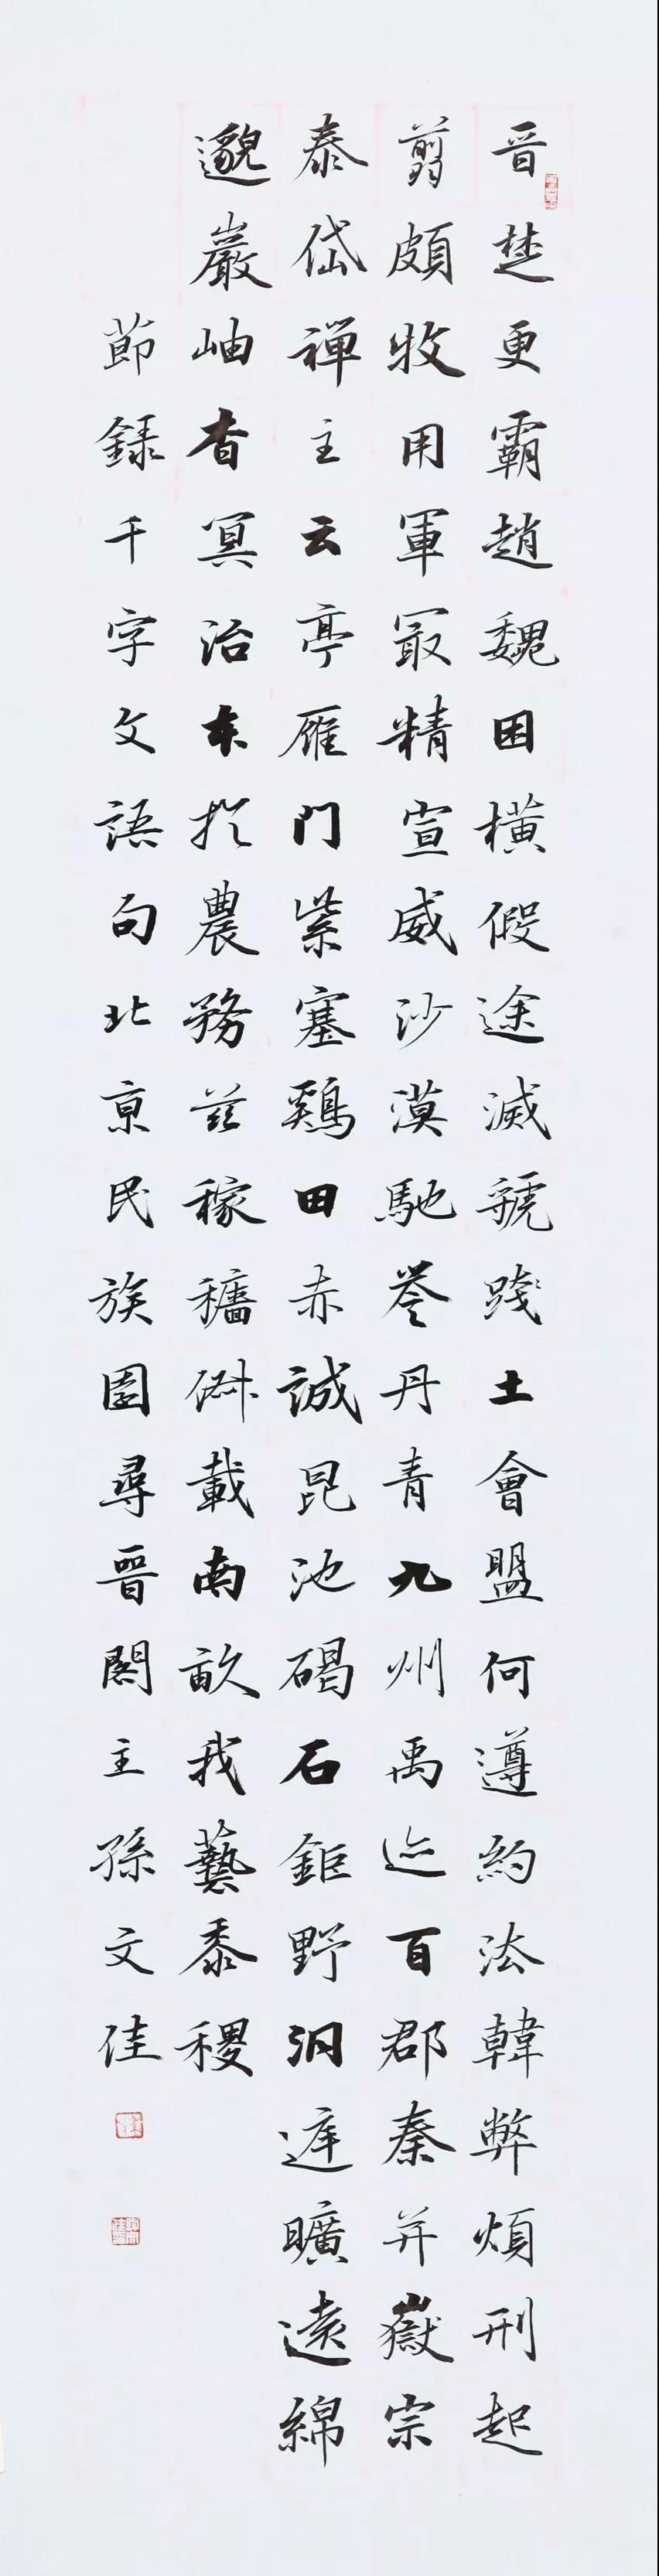 晋楚更霸趙魏困橫假途滅虢踐土會盟何遵約法韓弊煩刑起
翦頗牧用軍最精宣威沙漠馳譽丹青九州禹迹百郡秦并嶽宗
泰岱禪主云亭雁門紫塞鷄田赤誠昆池碣石鉅野洞庭曠遠綿
邈巖岫杳冥治本於農務茲稼穡俶載南畝我藝黍稷
節錄千字文語句北京民族園尋晉閣主孫文佳